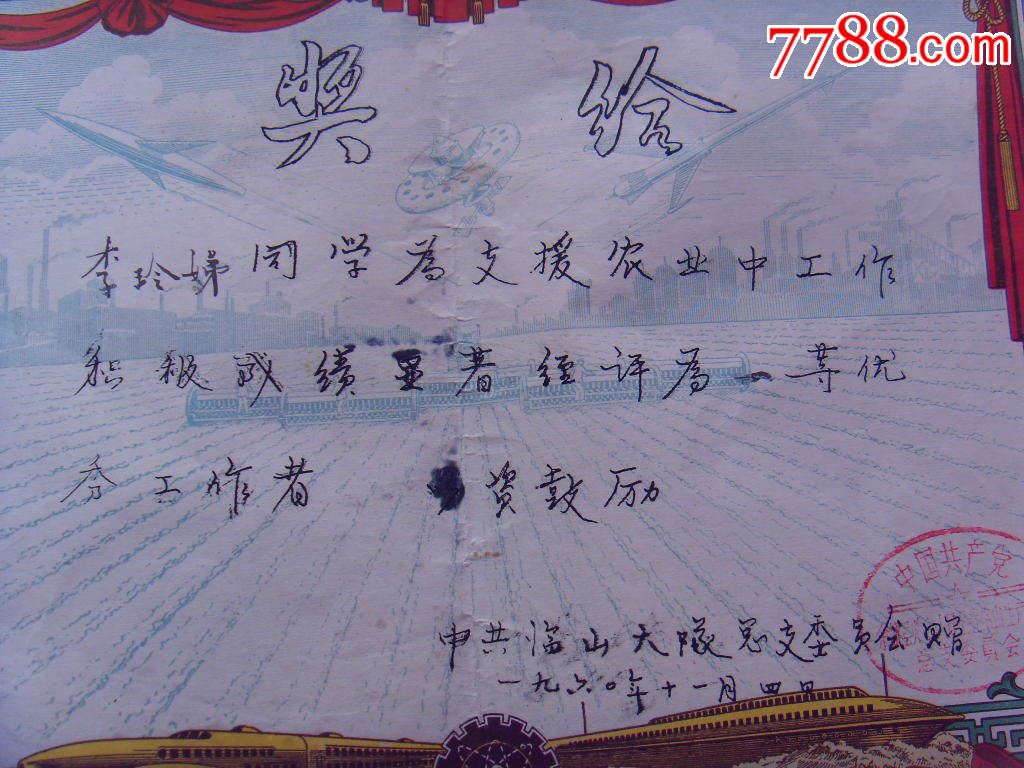 7788.com
奖给
李玲娣同学為支援农业中工作
积极成绩显著经评為一等优
秀工作者 资鼓厉
中共福山大隊总支委員会赠
一九六〇年十一月四日
中国共产党
总支委員会